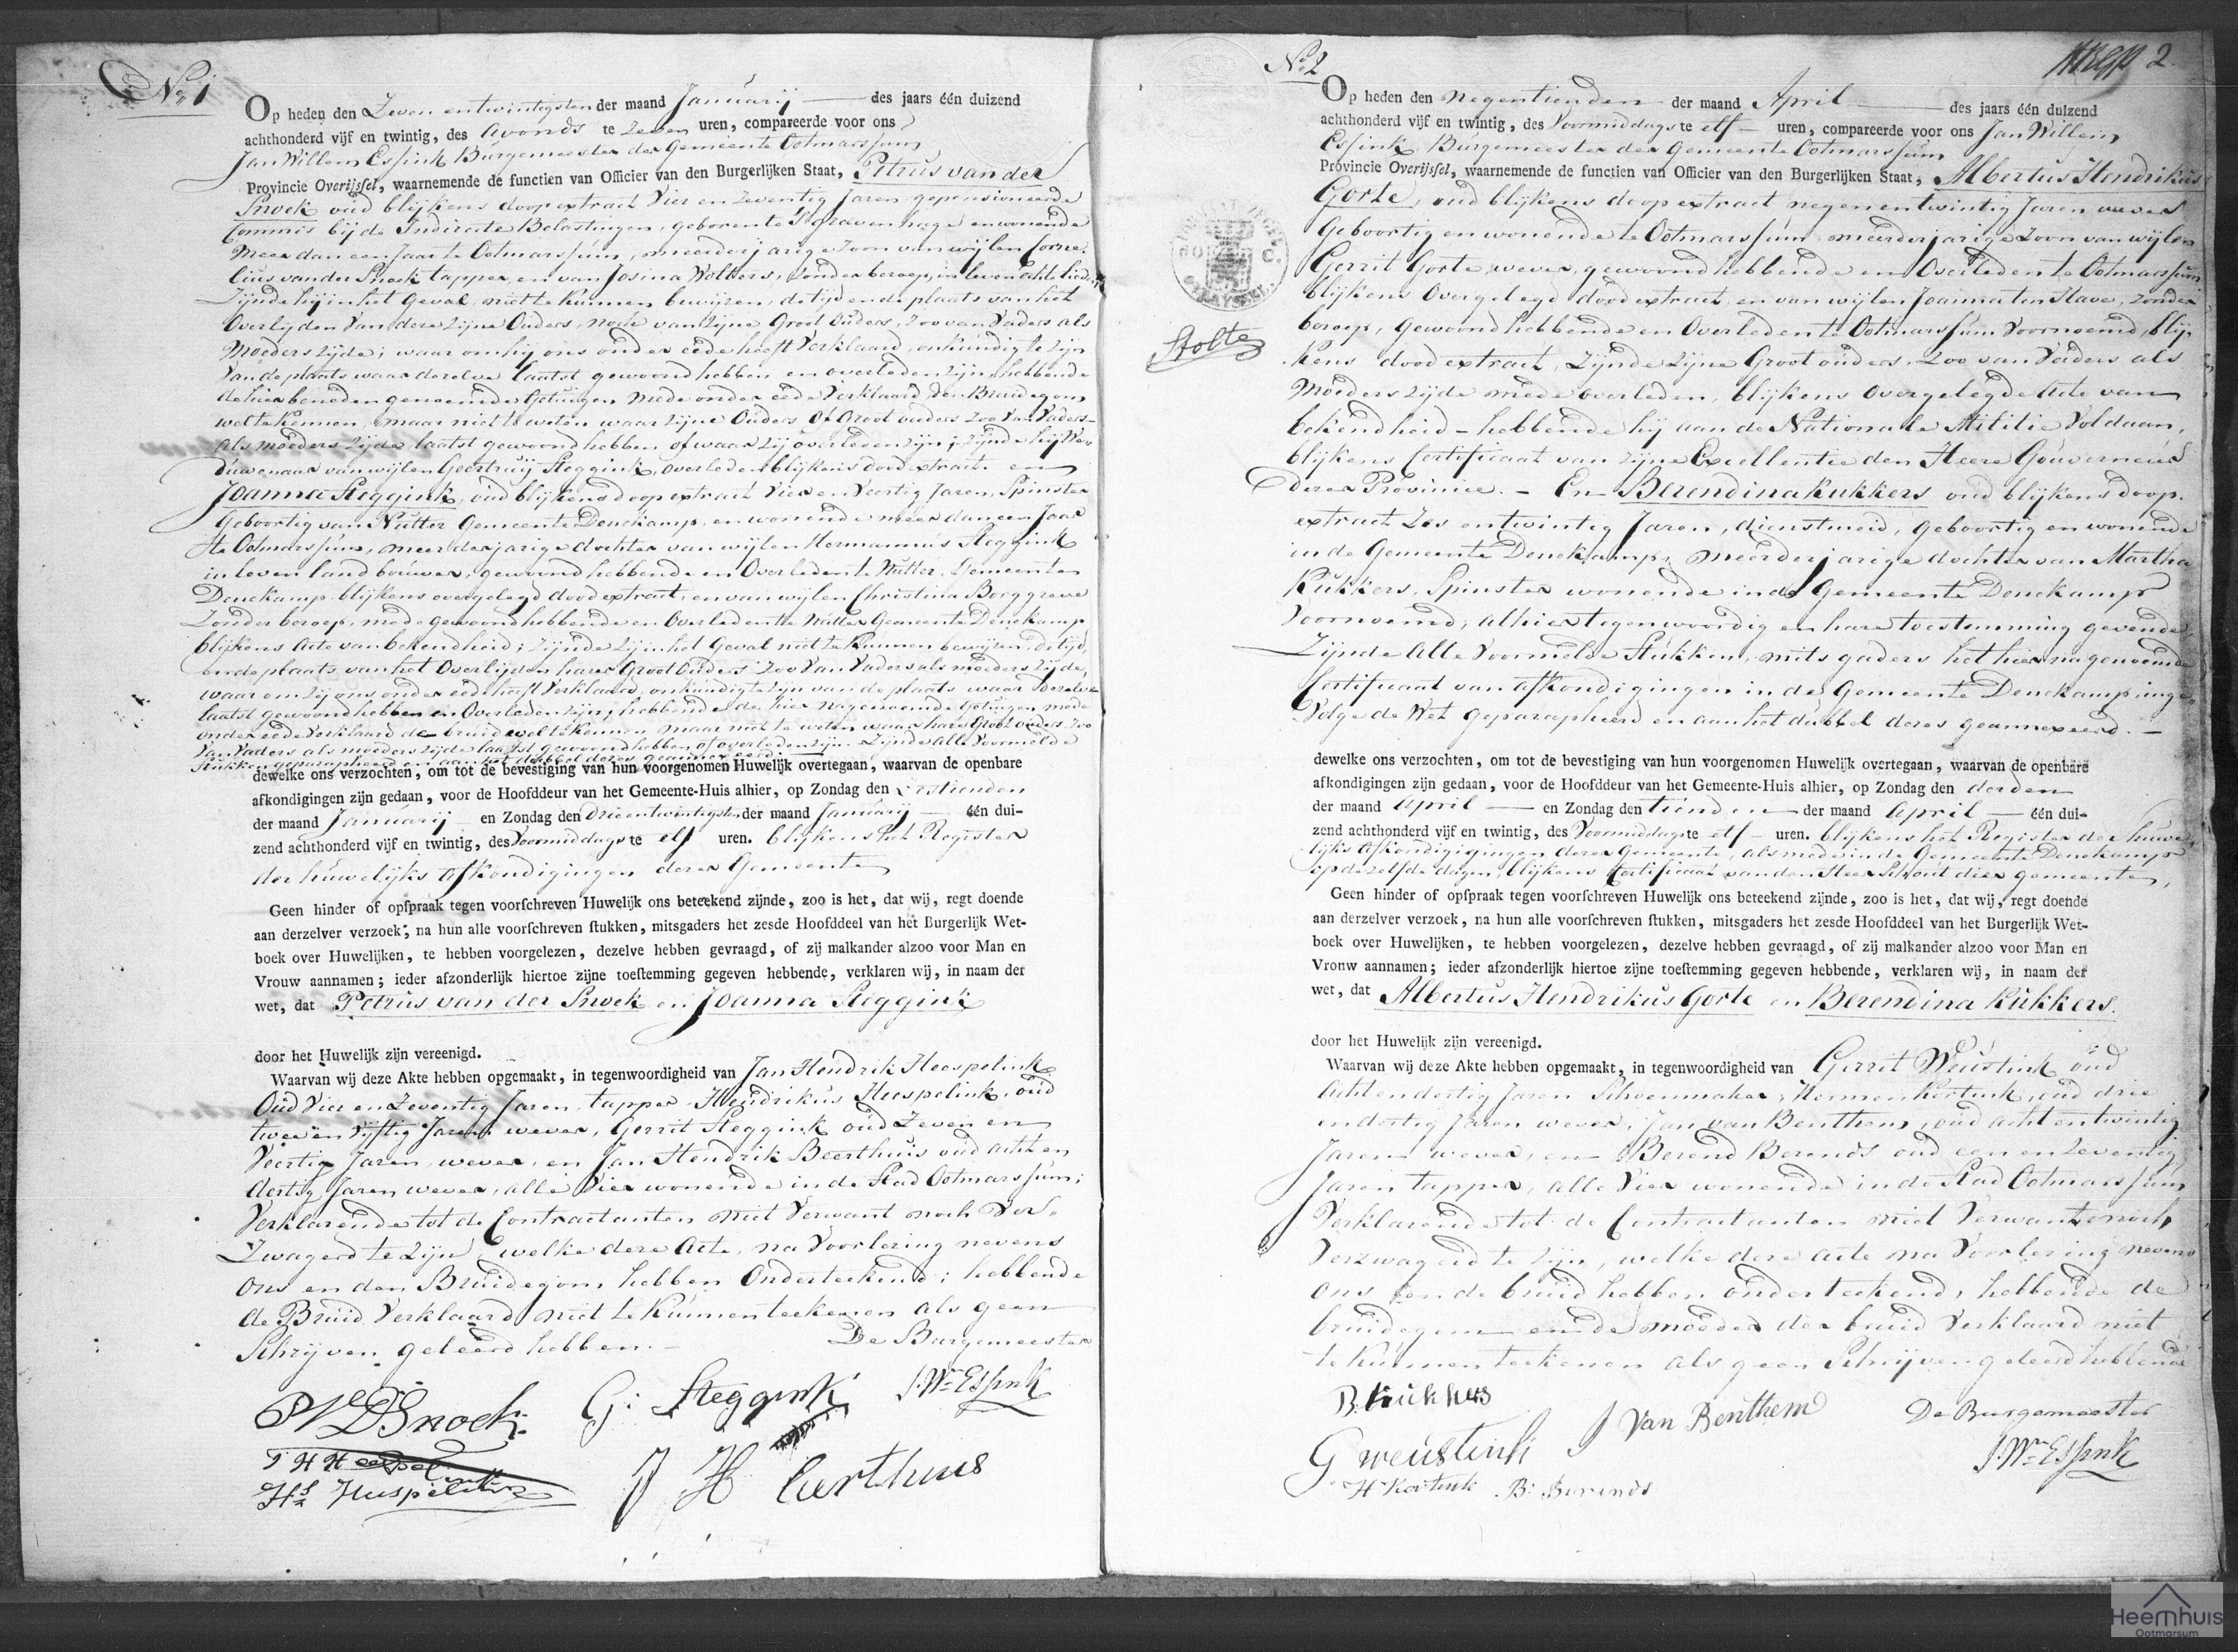 No. 1
Op heden den Zeven en twintigsten der maand Januarij des jaars één duizend
achthonderd vijf en twintig, des avonds te Zeven uren, compareerde voor ons
Jan Willem Essink Burgemeester der Gemeente Ootmarssum
Provincie Overijssel, waarnemende de functien van Officier van den Burgerlijken Staat, Petrus van der
Snoek oud blijkens doop extract Vier en Zeventig Jaren gepensioneerde
Commis bij de Indirecte Belastingen, geboren te 's Gravenhage en wonende
meer dan een Jaar te Ootmarssum, meerderjarige Zoon van wijlen Corne-
lius van der Snoek tapper, en van Josina Wolters, Zonder beroep, in leven
Zijnde hij in het Geval, niet te kunnen bewijzen, de tijd en de plaats van het
Overlijden Van deze Zijne Ouders, noch van Zijne Groot Ouders, Zoo van Vaders als
Moeders Zijde; waarom hij ons onder eede heeft Verklaard, onkundig te Zijn
Van de plaats waar dezelve laatst gewoond hebben en overleden Zijn, hebbende
de hier beneden genoemde Getuigen mede onder eede Verklaard, den Bruidegom
wel te kennen, maar niet te weten waar Zijne Ouders of Groot ouders Zoo Van Vaders-
als moeders Zijde, laatst gewoond hebben, of waar Zij overleden Zijn; Zijnde hij We-
duwenaar van wijlen Geertruij Steggink, overleden blijkens dood extract. en
Joanna Steggink, oud blijkens doop extract Vier en Veertig Jaren, Spinster
Geboortig van Nutter Gemeente Denekamp, en wonende meer dan een Jaar
te Ootmarssum, meerderjarige dochter van wijlen Hermannus Steggink
in leven landbouwer, gewoond hebbende en Overleden te Nutter, Gemeente
Denekamp blijkens overgelegd dood extract, en van wijlen Christina Borggreve
Zonder beroep, mede gewoond hebbende en Overleden te Nutter Gemeente Denekamp
blijkens Acte van bekendheid; Zijnde Zij in het Geval niet te kunnen bewijzen, de tijd,
en de plaats van het Overlijden harer Groot Ouders Zoo Van Vaders als moeders Zijde,
waarom Zij ons onder eede heeft Verklaard, onkundig te Zijn van de plaats waar dezelve
laatst gewoond hebben en Overleden Zijn; hebbende de hier nagenoemde Getuigen mede
onder eede Verklaard de bruid wel te kennen maar niet te weten waar hare Groot Ouders Zoo
Van Vaders als moeders Zijde laatst gewoond hebben of overleden Zijn. Zijnde alle Voormelde
Stukken geparapheerd en aan het dubbel dezes geannexeerd.
dewelke ons verzochten, om tot de bevestiging van hun voorgenomen Huwelijk overtegaan, waarvan de openbare
afkondigingen zijn gedaan, voor de Hoofddeur van het Gemeente-Huis alhier, op Zondag den
der maand Januarij en Zondag den drie en twintigsten der maand Januarij één dui-
zend achthonderd vijf en twintig, des Voormiddags te elf uren. blijkens het Register
der huwelijks afkondigingen dezer Gemeente
Geen hinder of opspraak tegen voorschreven Huwelijk ons beteekend zijnde, zoo is het, dat wij, regt doende
aan derzelver verzoek, na hun alle voorschreven stukken, mitsgaders het zesde Hoofddeel van het Burgerlijk Wet-
boek over Huwelijken, te hebben voorgelezen, dezelve hebben gevraagd, of zij malkander alzoo voor Man en
Vrouw aannamen; ieder afzonderlijk hiertoe zijne toestemming gegeven hebbende, verklaren wij, in naam der
wet, dat Petrus van der Snoek en Joanna Steggink
door het Huwelijk zijn vereenigd.
Waarvan wij deze Akte hebben opgemaakt, in tegenwoordigheid van Jan Hendrik Heespelink
Oud Vier en Zeventig Jaren, tapper, Hendrikus Heespelink, oud
twee en Vijftig Jaren wever, Gerrit Steggink oud Zeven en
Veertig Jaren, wever, en Jan Hendrik Beerthuis oud acht en
dertig Jaren wever, alle Vier wonende in de Stad Ootmarssum;
Verklarende tot de Contractanten niet Verwant noch Ver-
Zwagerd te Zijn, welke deze Acte, na Voorlezing nevens
Ons en den Bruidegom hebben Onderteekend; hebbende
de Bruid Verklaard niet te kunnen teekenen als geen
Schrijven geleerd hebben.
De Burgemeester
PVD Snoek G: Steggink J. Wm Essink
J H Heespelink
Hs Huspelink J H Eerthuus
No. 2
2.
Op heden den negentienden der maand April des jaars één duizend
achthonderd vijf en twintig, des Voormiddags te elf uren, compareerde voor ons Jan Willem
Essink Burgemeester der Gemeente Ootmarssum
Provincie Overijssel, waarnemende de functien van Officier van den Burgerlijken Staat, Albertus Hendrikus
Gorte, oud blijkens doop extract negen en twintig Jaren wever
Geboortig en wonende te Ootmarssum meerderjarige Zoon van wijlen
Gerrit Gorte, wever, gewoond hebbende en Overleden te Ootmarssum
blijkens Overgelegd dood extract, en van wijlen Joanna ten Have, Zonder
beroep, Gewoond hebbende en Overleden te Ootmarssum Voornoemd, blij-
kens dood extract, Zijnde Zijne Groot ouders, Zoo van Vaders als
Moeders Zijde mede overleden, blijkens Overgelegde Acte van
bekendheid - hebbende hij aan de Nationale Militie Voldaan,
blijkens Certificaat van Zijne Excellentie den Heere Gouverneur
dezer Provincie. - En Berendina Kukkers oud blijkens doop-
extract Zes en twintig Jaren, dienstmeid, geboortig en wonende
in de Gemeente Denekamp, meerderjarige dochter van Martha
Kukkers, Spinster wonende in de Gemeente Denekamp
Voornoemd, alhier tegenwoordig en hare toestemming gevende
Zijnde Alle Voormelde Stukken, mitsgaders het hier nagenoemde
Certificaat van afkondigingen in de Gemeente Denekamp inge-
Volge de Wet geparapheerd en aan het dubbel dezes geannexeerd. -
dewelke ons verzochten, om tot de bevestiging van hun voorgenomen Huwelijk overtegaan, waarvan de openbare
afkondigingen zijn gedaan, voor de Hoofddeur van het Gemeente-Huis alhier, op Zondag den derden
der maand April en Zondag den tienden der maand April één dui-
zend achthonderd vijf en twintig, des Voormiddags te elf uren. blijkens het Register der Huwe-
lijks Afkondigingen dezer Gemeente, als mede in de Gemeente Denekamp
op dezelfde dagen, blijkens Certificaat van den Heer Schout dier gemeente,
Geen hinder of opspraak tegen voorschreven Huwelijk ons beteekend zijnde, zoo is het, dat wij, regt doende
aan derzelver verzoek, na hun alle voorschreven stukken, mitsgaders het zesde Hoofddeel van het Burgerlijk Wet-
boek over Huwelijken, te hebben voorgelezen, dezelve hebben gevraagd, of zij malkander alzoo voor Man en
Vrouw aannamen; ieder afzonderlijk hiertoe zijne toestemming gegeven hebbende, verklaren wij, in naam der
wet, dat Albertus Hendrikus Gorte en Berendina Kukkers.
door het Huwelijk zijn vereenigd.
Waarvan wij deze Akte hebben opgemaakt, in tegenwoordigheid van Gerrit Weustink oud
Acht en dertig Jaren Schoenmaker, Hermen Kortink, oud drie
en dertig Jaren wever, Jan van Benthem, oud acht en twintig
Jaren wever, en Berend Berends oud een en Zeventig
Jaren tapper, alle Vier wonende in de Stad Ootmarssum
Verklarende tot de Contractanten niet Verwant noch
Verzwagerd te Zijn, welke deze acte na Voorlezing nevens
Ons en de bruid hebben onderteekend, hebbende de
bruidegom en de moeder der bruid Verklaard niet
te kunnen teekenen als geen Schrijven geleerd hebbende
B. Kukkers
G Weustink J Van Benthem De Burgemeester
H Kortink B: Berends J. Wm Essink
Stolte
Heemhuis
Ootmarsum